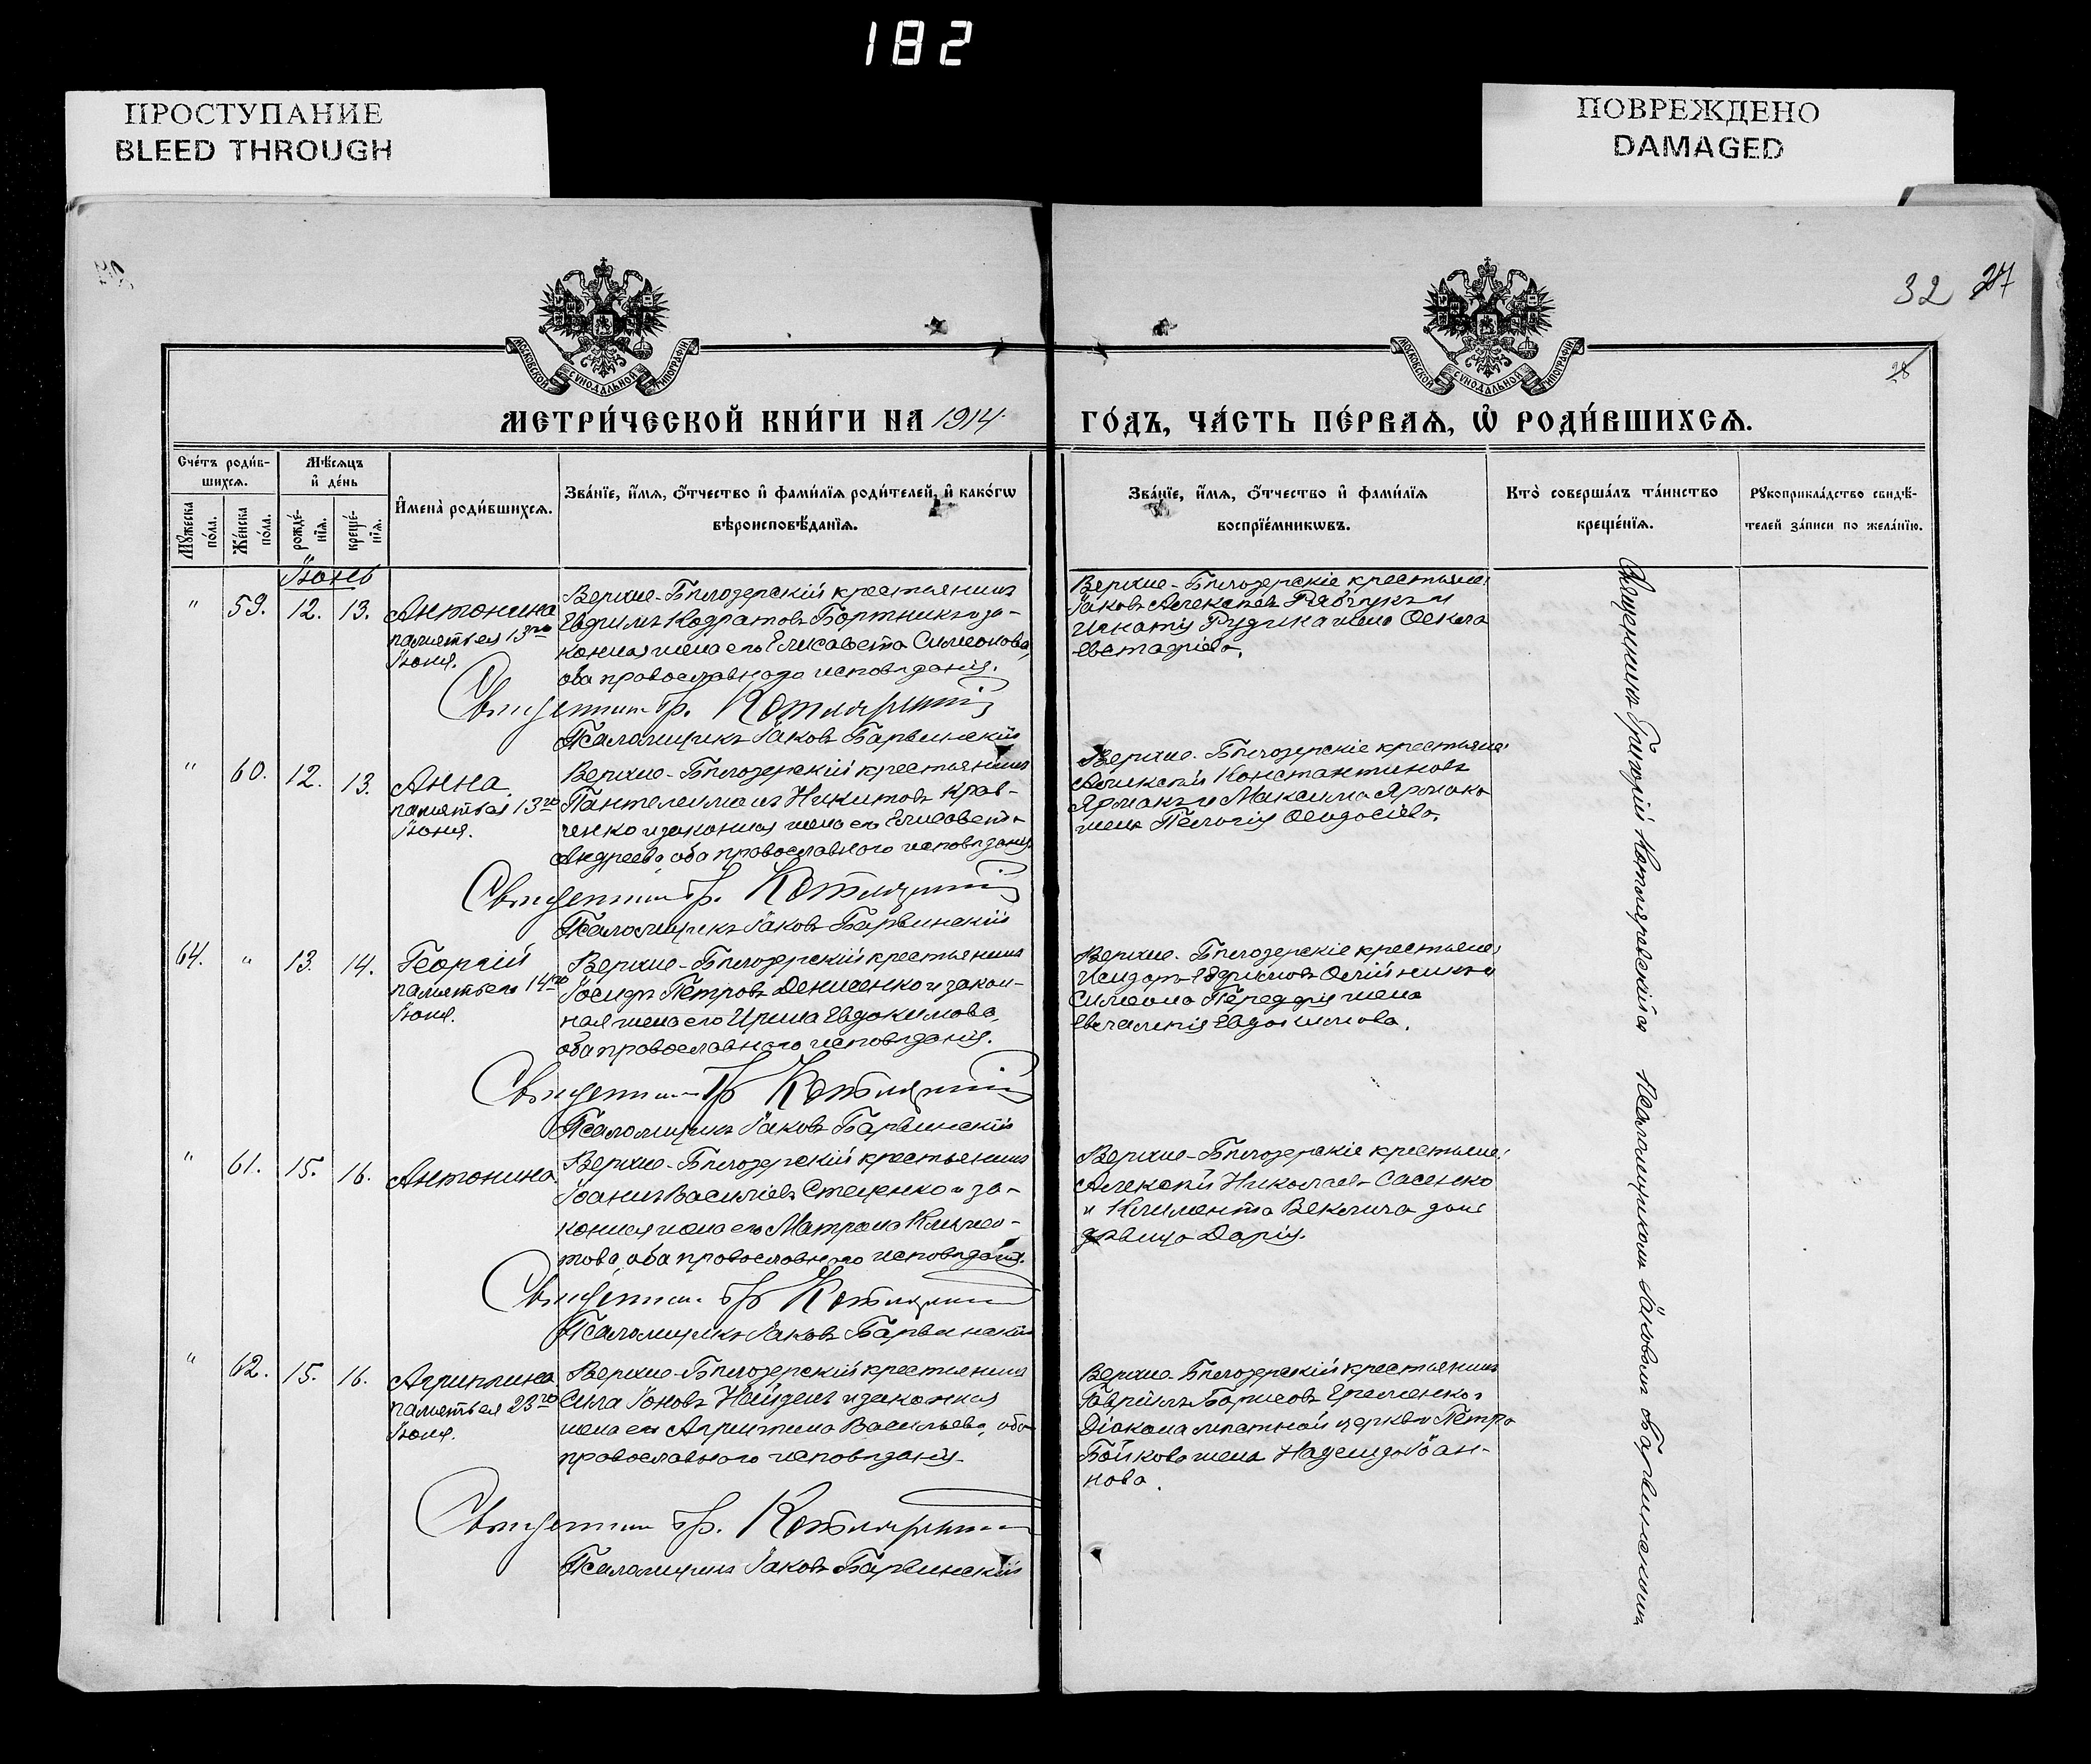 182
ПРОСТУПАНИЕ
BLEED THROUGH
ПОВРЕЖДЕНО
DAMAGED
32 27
28
МОСКОВСКОЙ СѴНОДАЛЬНОЙ ТИПОГРАФІИ
МОСКОВСКОЙ СѴНОДАЛЬНОЙ ТИПОГРАФІИ
МЕТРИ́ЧЕСКОЙ КНИ́ГИ НА 1914
ГО́ДЪ, ЧА́СТЬ ПЕ́РВАѦ, Ѡ҆ РОДИ́ВШИХСѦ.
Сче́тъ роди́в-
шихсѧ.
Мѣ́сѧцъ
и҆ де́нь
Мꙋ́жеска
по́ла.
Же́нска
по́ла.
рожде́-
нїѧ.
креще́-
нїѧ.
И҆мена̀ роди́вшихсѧ.
Зва́нїе, и҆́мѧ, ѻ҆́тчество и҆ фами́лїѧ роди́телей, и҆ како́гѡ
вѣроисповѣ́данїѧ.
Зва́нїе, и҆́мѧ, ѻ҆́тчество и҆ фами́лїѧ
воспрїе́мникѡвъ.
Кто̀ соверша́лъ та́инство
креще́нїѧ.
Рꙋкоприкла́дство свидѣ́-
телей за́писи по жела́нїю.
Іюнь
" 59. 12. 13. Антонина
память ея 13го
Іюня.
Верхне-Бѣлозерскій крестьянинъ
Евфимъ Кодратовъ Бортникъ и за-
конная жена его Елисавета Симеонова,
оба православнаго исповѣданія.
Священникъ Гр. Котляревскій
Псаломщикъ Іаковъ Барвинскій
Верхне-Бѣлозерскіе крестьяне:
Іаковъ Алексѣевъ Рябчукъ и
Игнатія Рудика жена Ѳекла
Евстафіева.
" 60. 12. 13. Анна
память ея 13го
Іюня.
Верхне-Бѣлозерскій крестьянинъ
Пантелеимонъ Никитовъ Крав-
ченко и законная жена его Елисавета
Андреева, оба православнаго исповѣданія.
Священникъ Гр. Котляревскій
Псаломщикъ Іаковъ Барвинскій
Верхне-Бѣлозерскіе крестьяне:
Алексѣй Константиновъ
Ярмакъ и Максима Ярмака
жена Пелагія Ѳеодосіева.
64. " 13. 14. Георгій
память его 14го
Іюня.
Верхне-Бѣлозерскій крестьянинъ
Іосифъ Петровъ Денисенко и закон-
ная жена его Ирина Евдокимова,
оба православнаго исповѣданія.
Священникъ Гр. Котляревскій
Псаломщикъ Іаковъ Барвинскій
Верхне-Бѣлозерскіе крестьяне:
Исидоръ Евфимовъ Олійникъ и
Симеона жена
Евдокимова.
" 61. 15. 16. Антонина
Верхне-Бѣлозерскій крестьянинъ
Іоаннъ Василіевъ Стеценко и за-
конная жена его Матрона Климен-
това, оба православнаго исповѣданія.
Священникъ Гр. Котляревскій
Псаломщикъ Іаковъ Барвинскій
Верхне-Бѣлозерскіе крестьяне:
Алексѣй Николаевъ Сасенко
и Климента Веклича дочь
дѣвица Дарія.
" 62. 15. 16. Агриппина
память ея 23го
Іюня.
Верхне-Бѣлозерскій крестьянинъ
Сила Іоновъ Найденъ и законная
жена его Агриппина Васильева, оба
православнаго исповѣданія.
Священникъ Гр. Котляревскій
Псаломщикъ Іаковъ Барвинскій
Верхне-Бѣлозерскій крестьянинъ
Гавріилъ Борисовъ Еременко и
Діакона мѣстной церкви Петра
Бойкова жена Надежда Іоан-
нова.
Священникъ Григорій Котляревскій съ Псаломщикомъ Іаковомъ Барвинскимъ